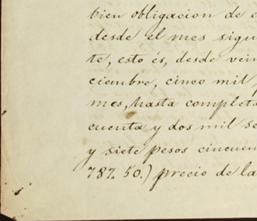 bien obligacion de
desde el mes sigu
te, esto és, desde vein
ciembre, cinco mil
mes, hasta completa
cuenta y dos mil se
y siete pesos cincuen
787. 50.) precio de la